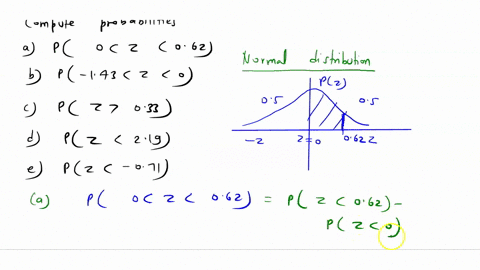 Compute probabilities
a) P( 0 < Z < 0.62)
b) P(-1.43 < Z < 0)
c) P( Z > 0.33)
d) P( Z < 2.19)
e) P(Z < -0.71)
Normal distribution
P(z)
0.5
0.5
-Z
Z=0
0.62 Z
(a) P( 0 < Z < 0.62) = P( Z < 0.62) -
P( Z < 0)